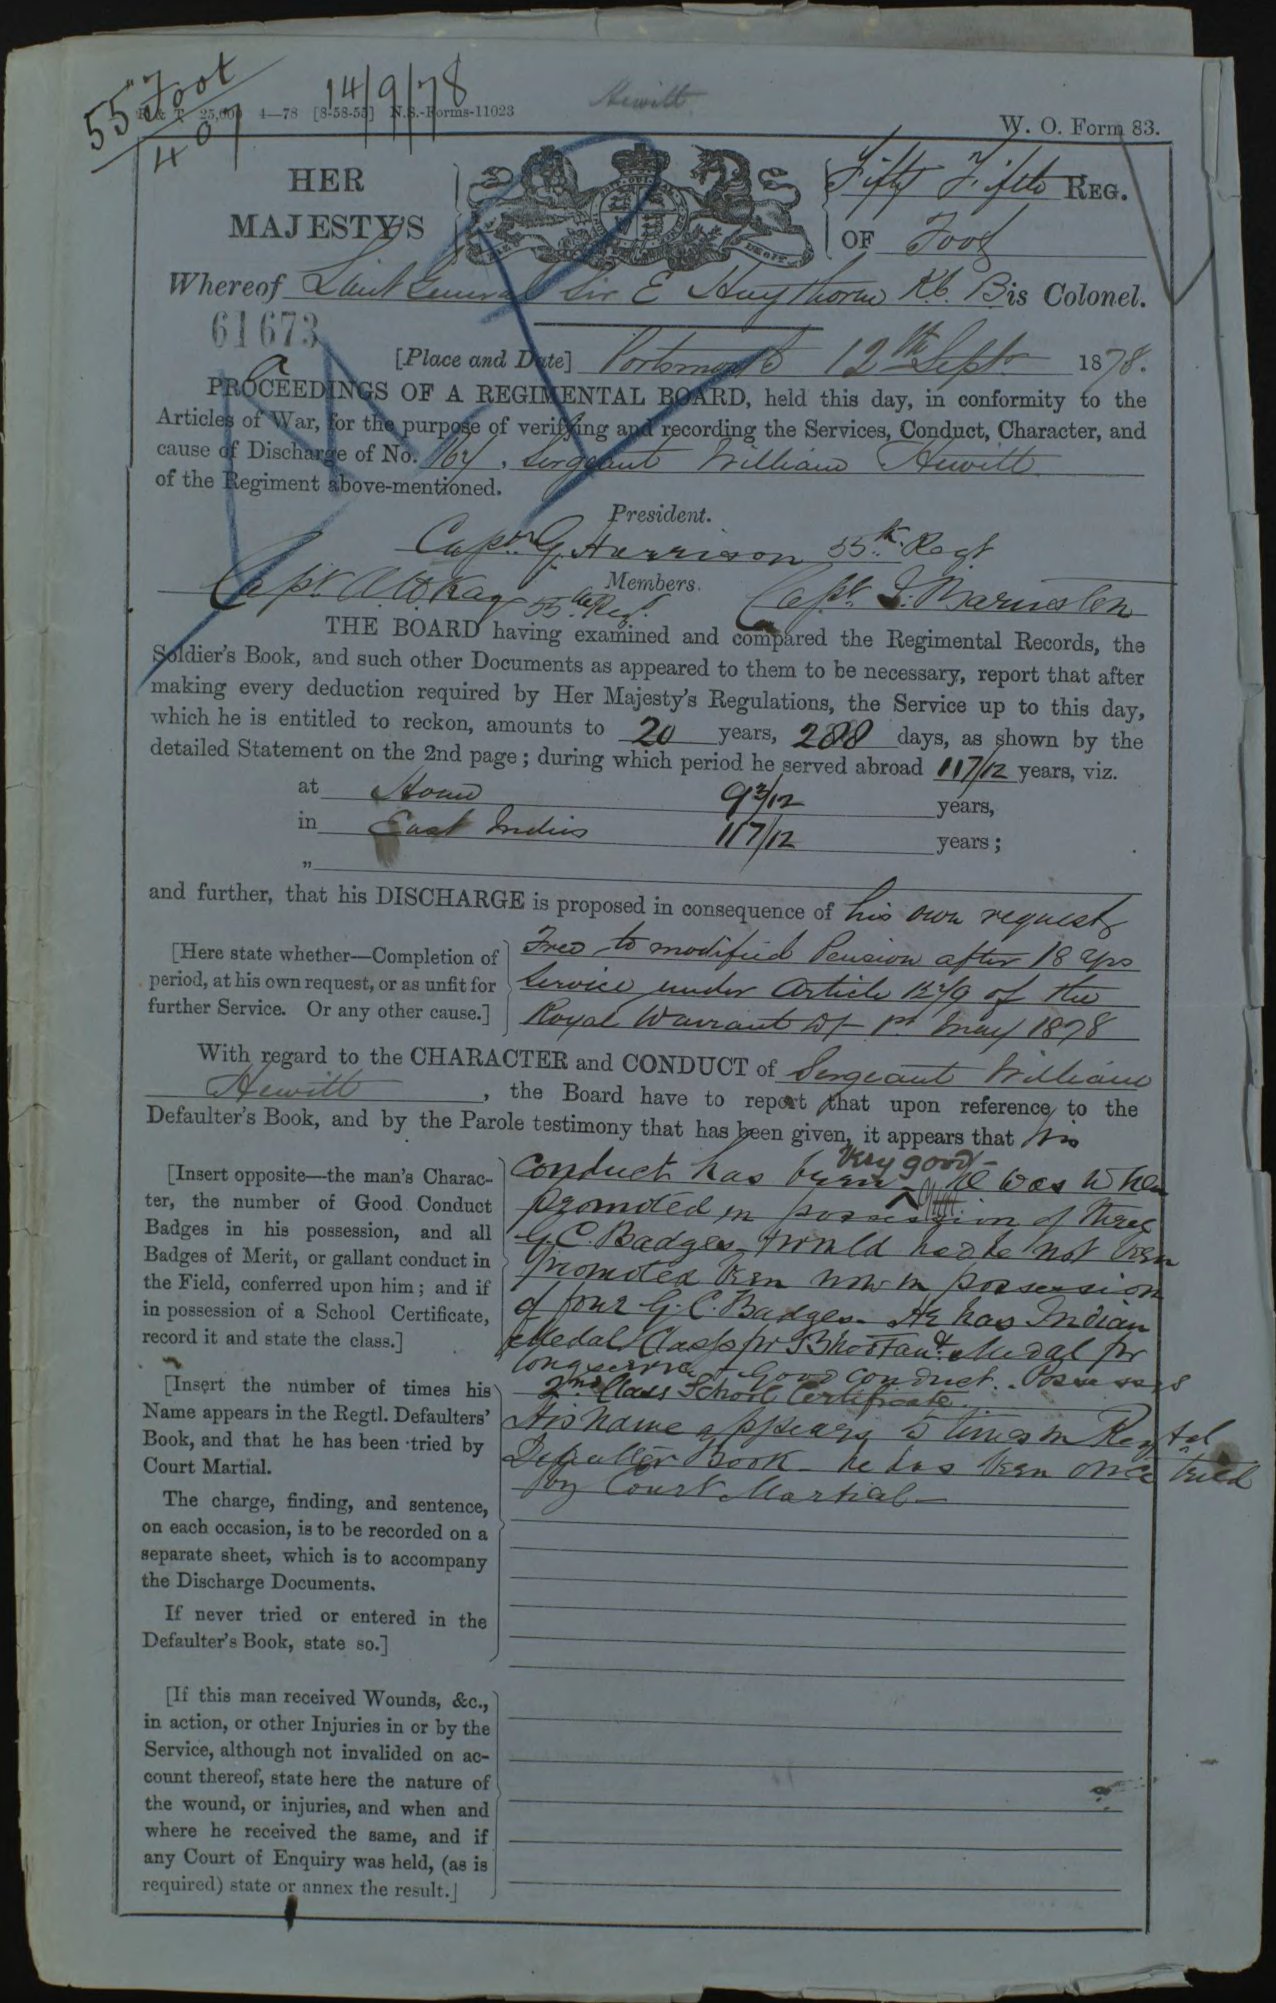 55" Foot
407
14/9/78
Hewitt
R & T 25,000 4—78 [8-58-55] N.S.-Forms-11023
W. O. Form 83.
HER
MAJESTY'S
Fifty Fifth REG.
OF Foot
Whereof Lieut General Sir E Haythorne K.C.B is Colonel.
61673
[Place and Date] Portsmouth 12th Sept 1878.
PROCEEDINGS OF A REGIMENTAL BOARD, held this day, in conformity to the
Articles of War, for the purpose of verifying and recording the Services, Conduct, Character, and
cause of Discharge of No. Sergeant William Hewitt
of the Regiment above-mentioned.
President.
Captn G. Harrison 55th Regt
Members.
Capt 55th Regt. Capt.
THE BOARD having examined and compared the Regimental Records, the
Soldier's Book, and such other Documents as appeared to them to be necessary, report that after
making every deduction required by Her Majesty's Regulations, the Service up to this day,
which he is entitled to reckon, amounts to 20 years, 288 days, as shown by the
detailed Statement on the 2nd page; during which period he served abroad 11 7/12 years, viz.
at Home 9 3/12 years,
in East Indies 11 7/12 years;
„
and further, that his DISCHARGE is proposed in consequence of his own request
[Here state whether—Completion of
period, at his own request, or as unfit for
further Service. Or any other cause.]
Free to modified Pension after 18 Yrs
Service under Article of the
Royal Warrant Dt 1st May 1878
With regard to the CHARACTER and CONDUCT of Sergeant William
Hewitt, the Board have to report that upon reference to the
Defaulter's Book, and by the Parole testimony that has been given, it appears that his
[Insert opposite—the man's Charac-
ter, the number of Good Conduct
Badges in his possession, and all
Badges of Merit, or gallant conduct in
the Field, conferred upon him; and if
in possession of a School Certificate,
record it and state the class.]
conduct has been very good - he was when
promoted in possession of three
G.C. Badges & would had he not been
promoted been now in possession
of four G.C. Badges. He has Indian
Medal Clasp for Bhootan & Medal for
long service & Good Conduct. Possesses
2nd Class School Certificate.
[Insert the number of times his
Name appears in the Regtl. Defaulters'
Book, and that he has been tried by
Court Martial.
The charge, finding, and sentence,
on each occasion, is to be recorded on a
separate sheet, which is to accompany
the Discharge Documents.
If never tried or entered in the
Defaulter's Book, state so.]
His name appears 5 times in Regtal
Defaulter Book - he has been once tried
by Court Martial -
[If this man received Wounds, &c.,
in action, or other Injuries in or by the
Service, although not invalided on ac-
count thereof, state here the nature of
the wound, or injuries, and when and
where he received the same, and if
any Court of Enquiry was held, (as is
required) state or annex the result.]